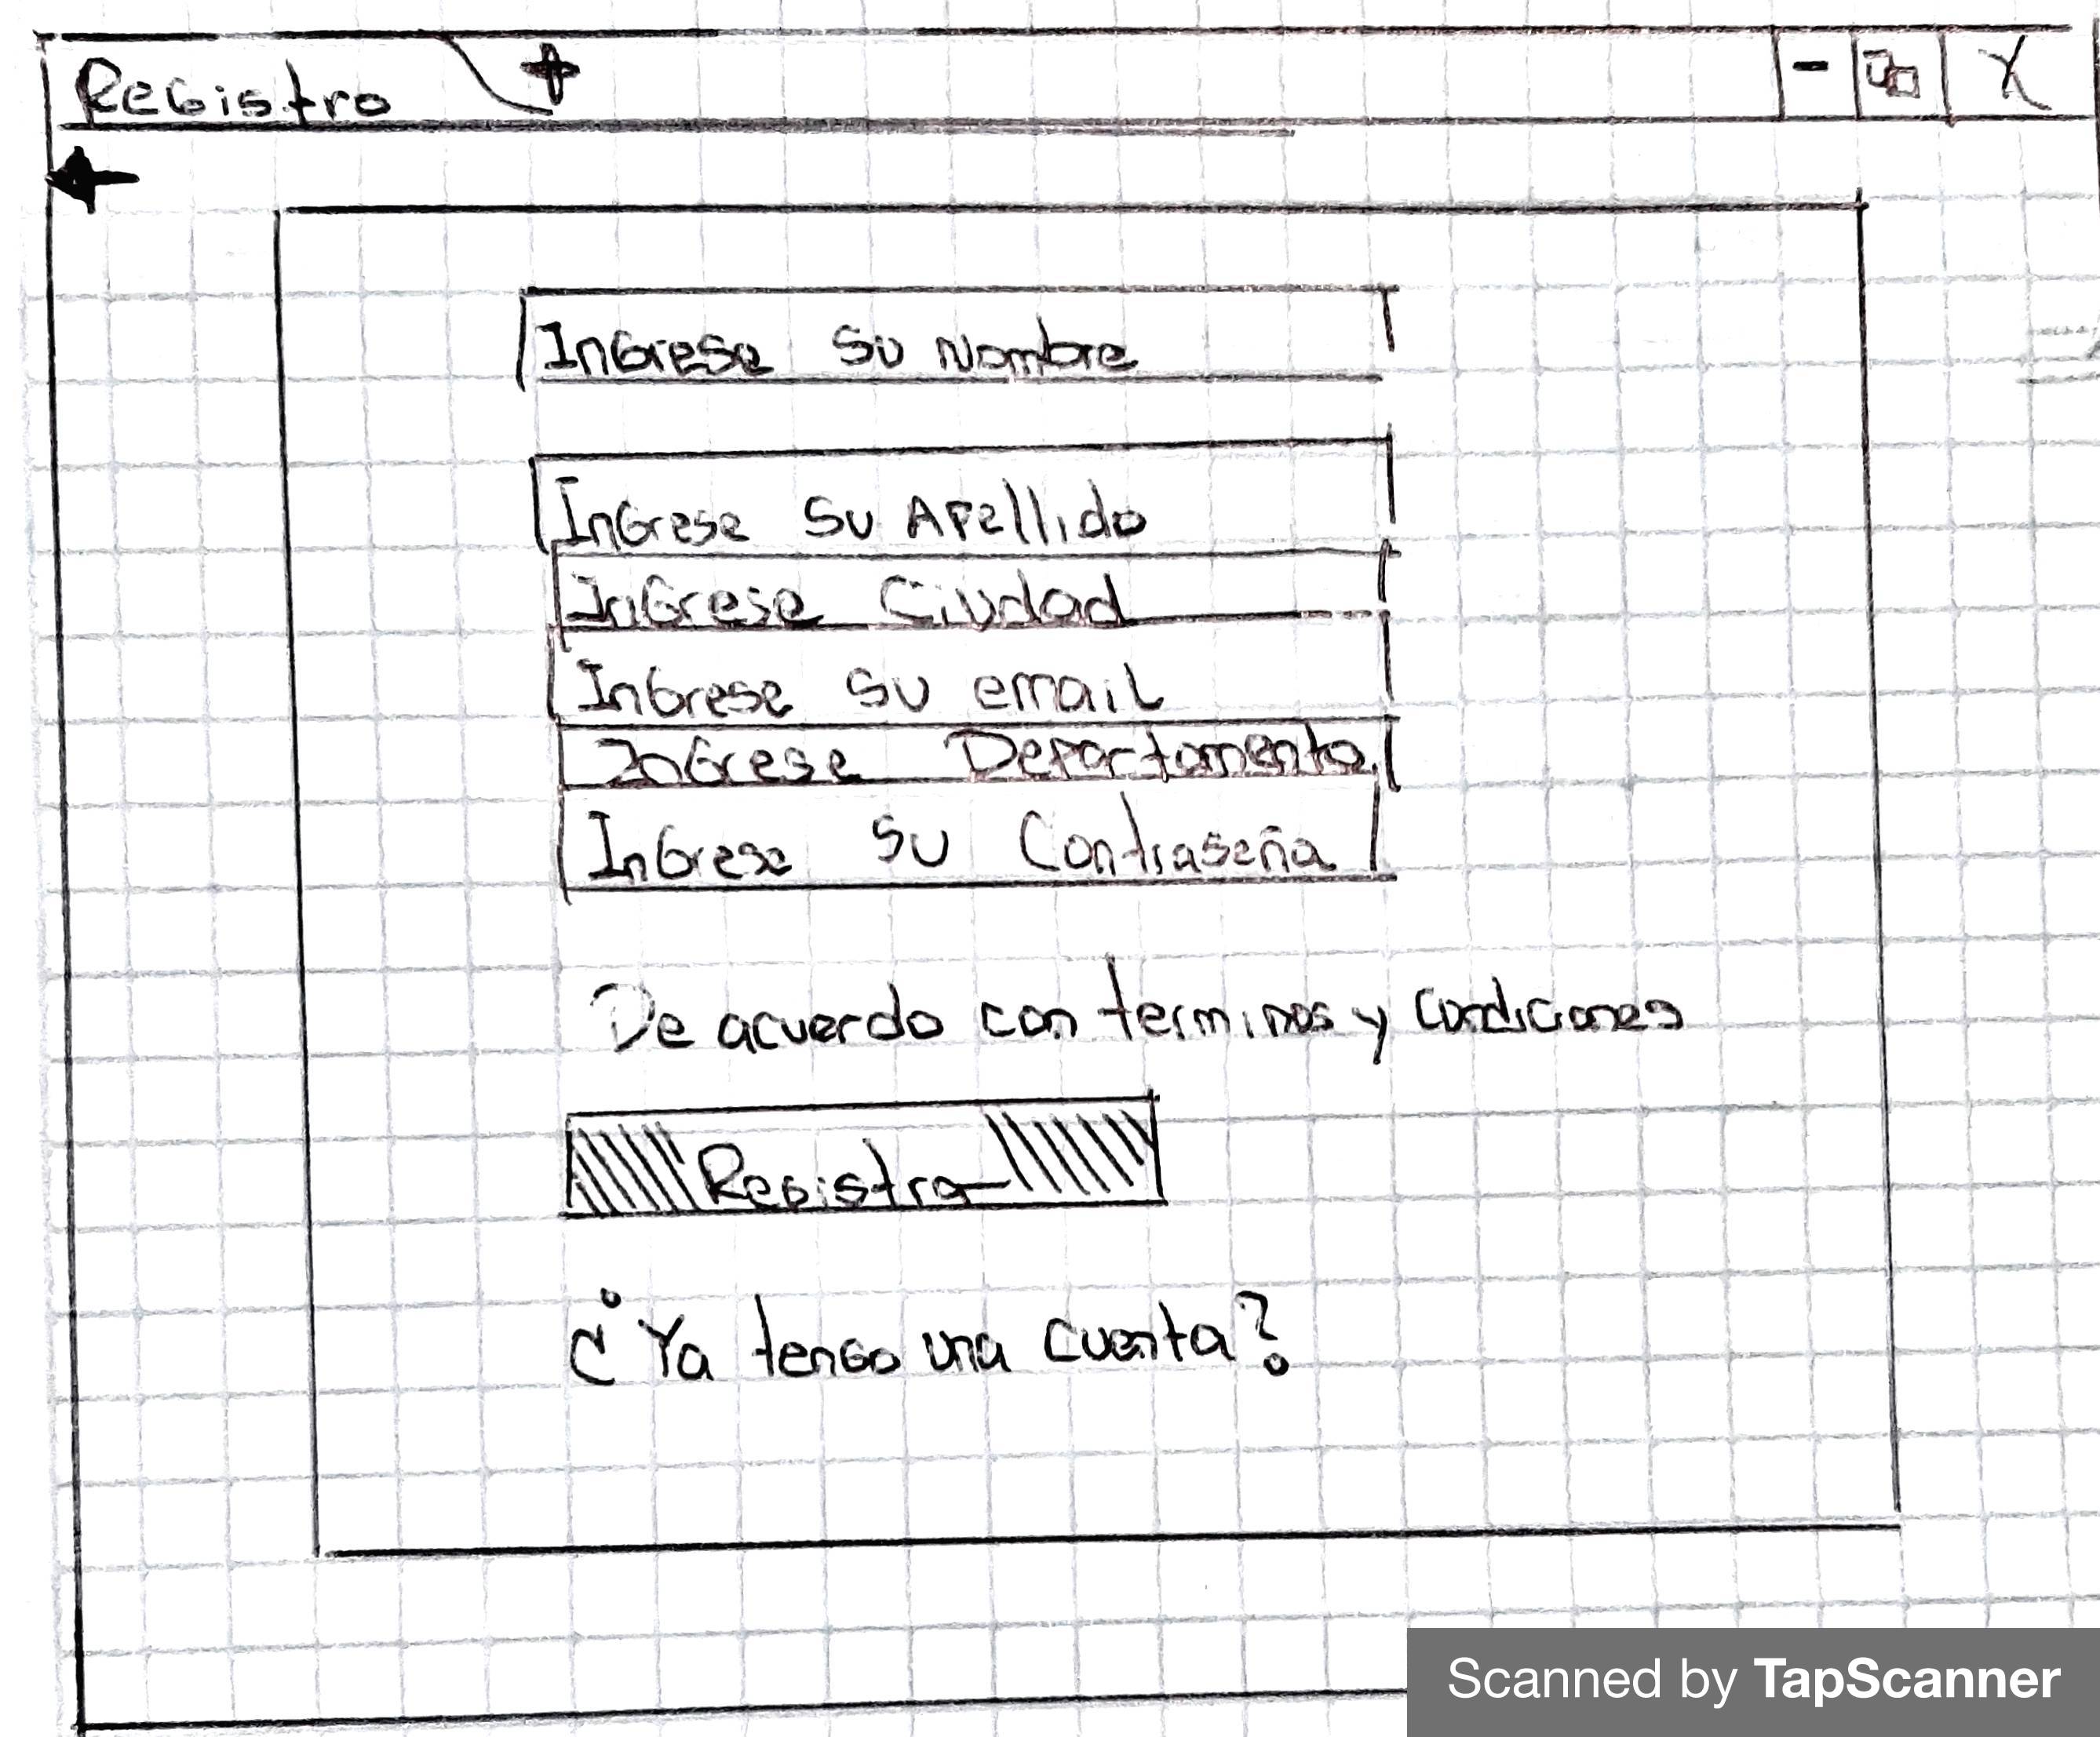 Registro +
- X
Ingrese su Nombre
Ingrese su Apellido
Ingrese Ciudad
Ingrese su email
Ingrese Departamento
Ingrese su Contraseña
De acuerdo con terminos y condiciones
Registro
¿Ya tengo una cuenta?
Scanned by TapScanner